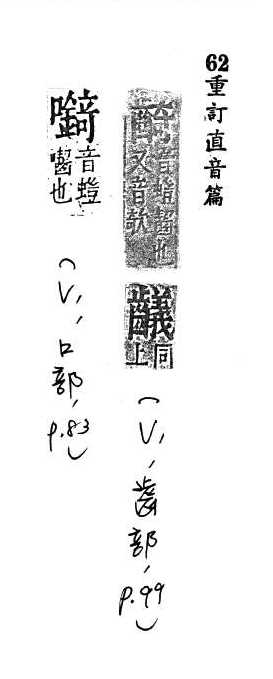 62重訂直音篇
齮音螘齧也又音欹
同上
（V，齒部，p.99）
音螘囓也
（V，口部，p.83）